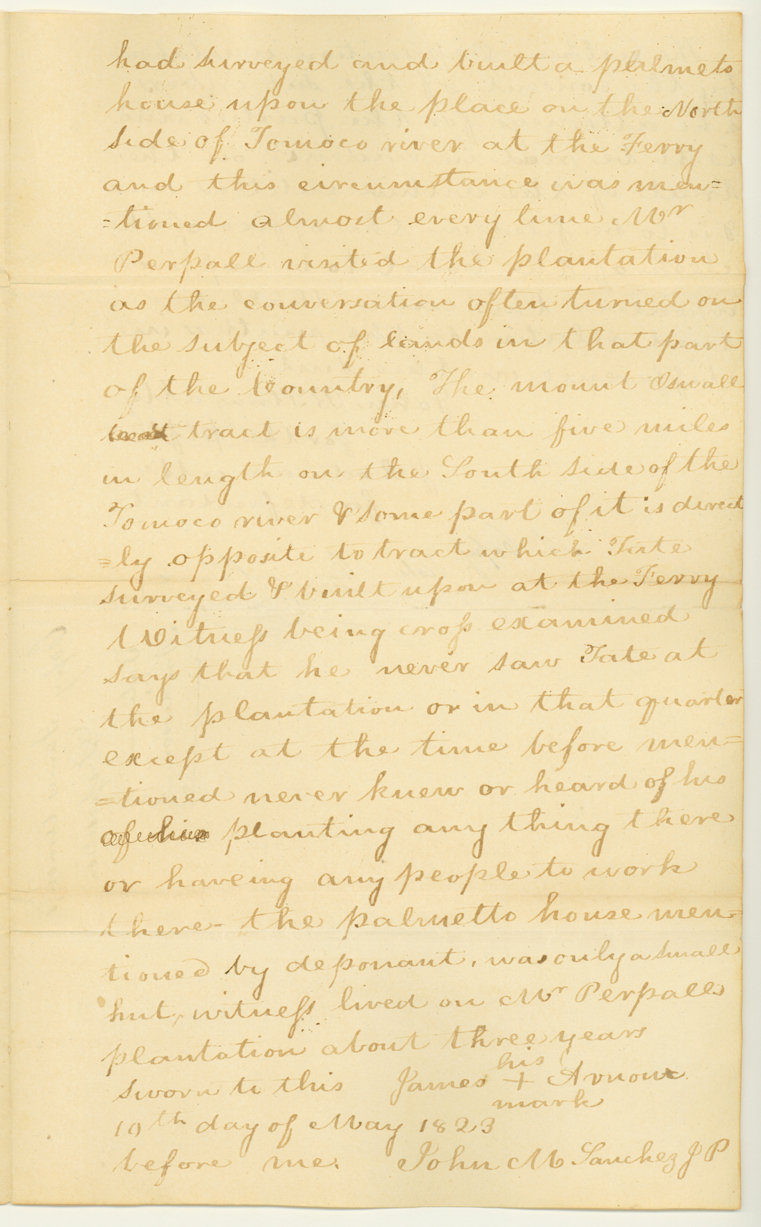 had surveyed and built a palmeto
house upon the place on the North
side of Tomoco river at the Ferry
and this circumstance was men=
=tioned almost every time Mr
Perpall visited the plantation
as the conversation often turned on
the subject of lands in that part
of the Country, The mount Oswall
tract is more than five miles
in length on the South side of the
Tomoco river & some part of it is direct
=ly opposite to tract which Tate
surveyed & built upon at the Ferry
Witness being cross examined
says that he never saw Tate at
the plantation or in that quarter
except at the time before men=
=tioned never knew or heard of his
planting any thing there
or haveing any people to work
there - the palmetto house men=
tioned by deponant, was only a small
hut, witness lived on Mr Perpalls
plantation about three years
his
Sworn to this James + Arnow
mark
10th day of May 1823
before me. John M Sanchez JP